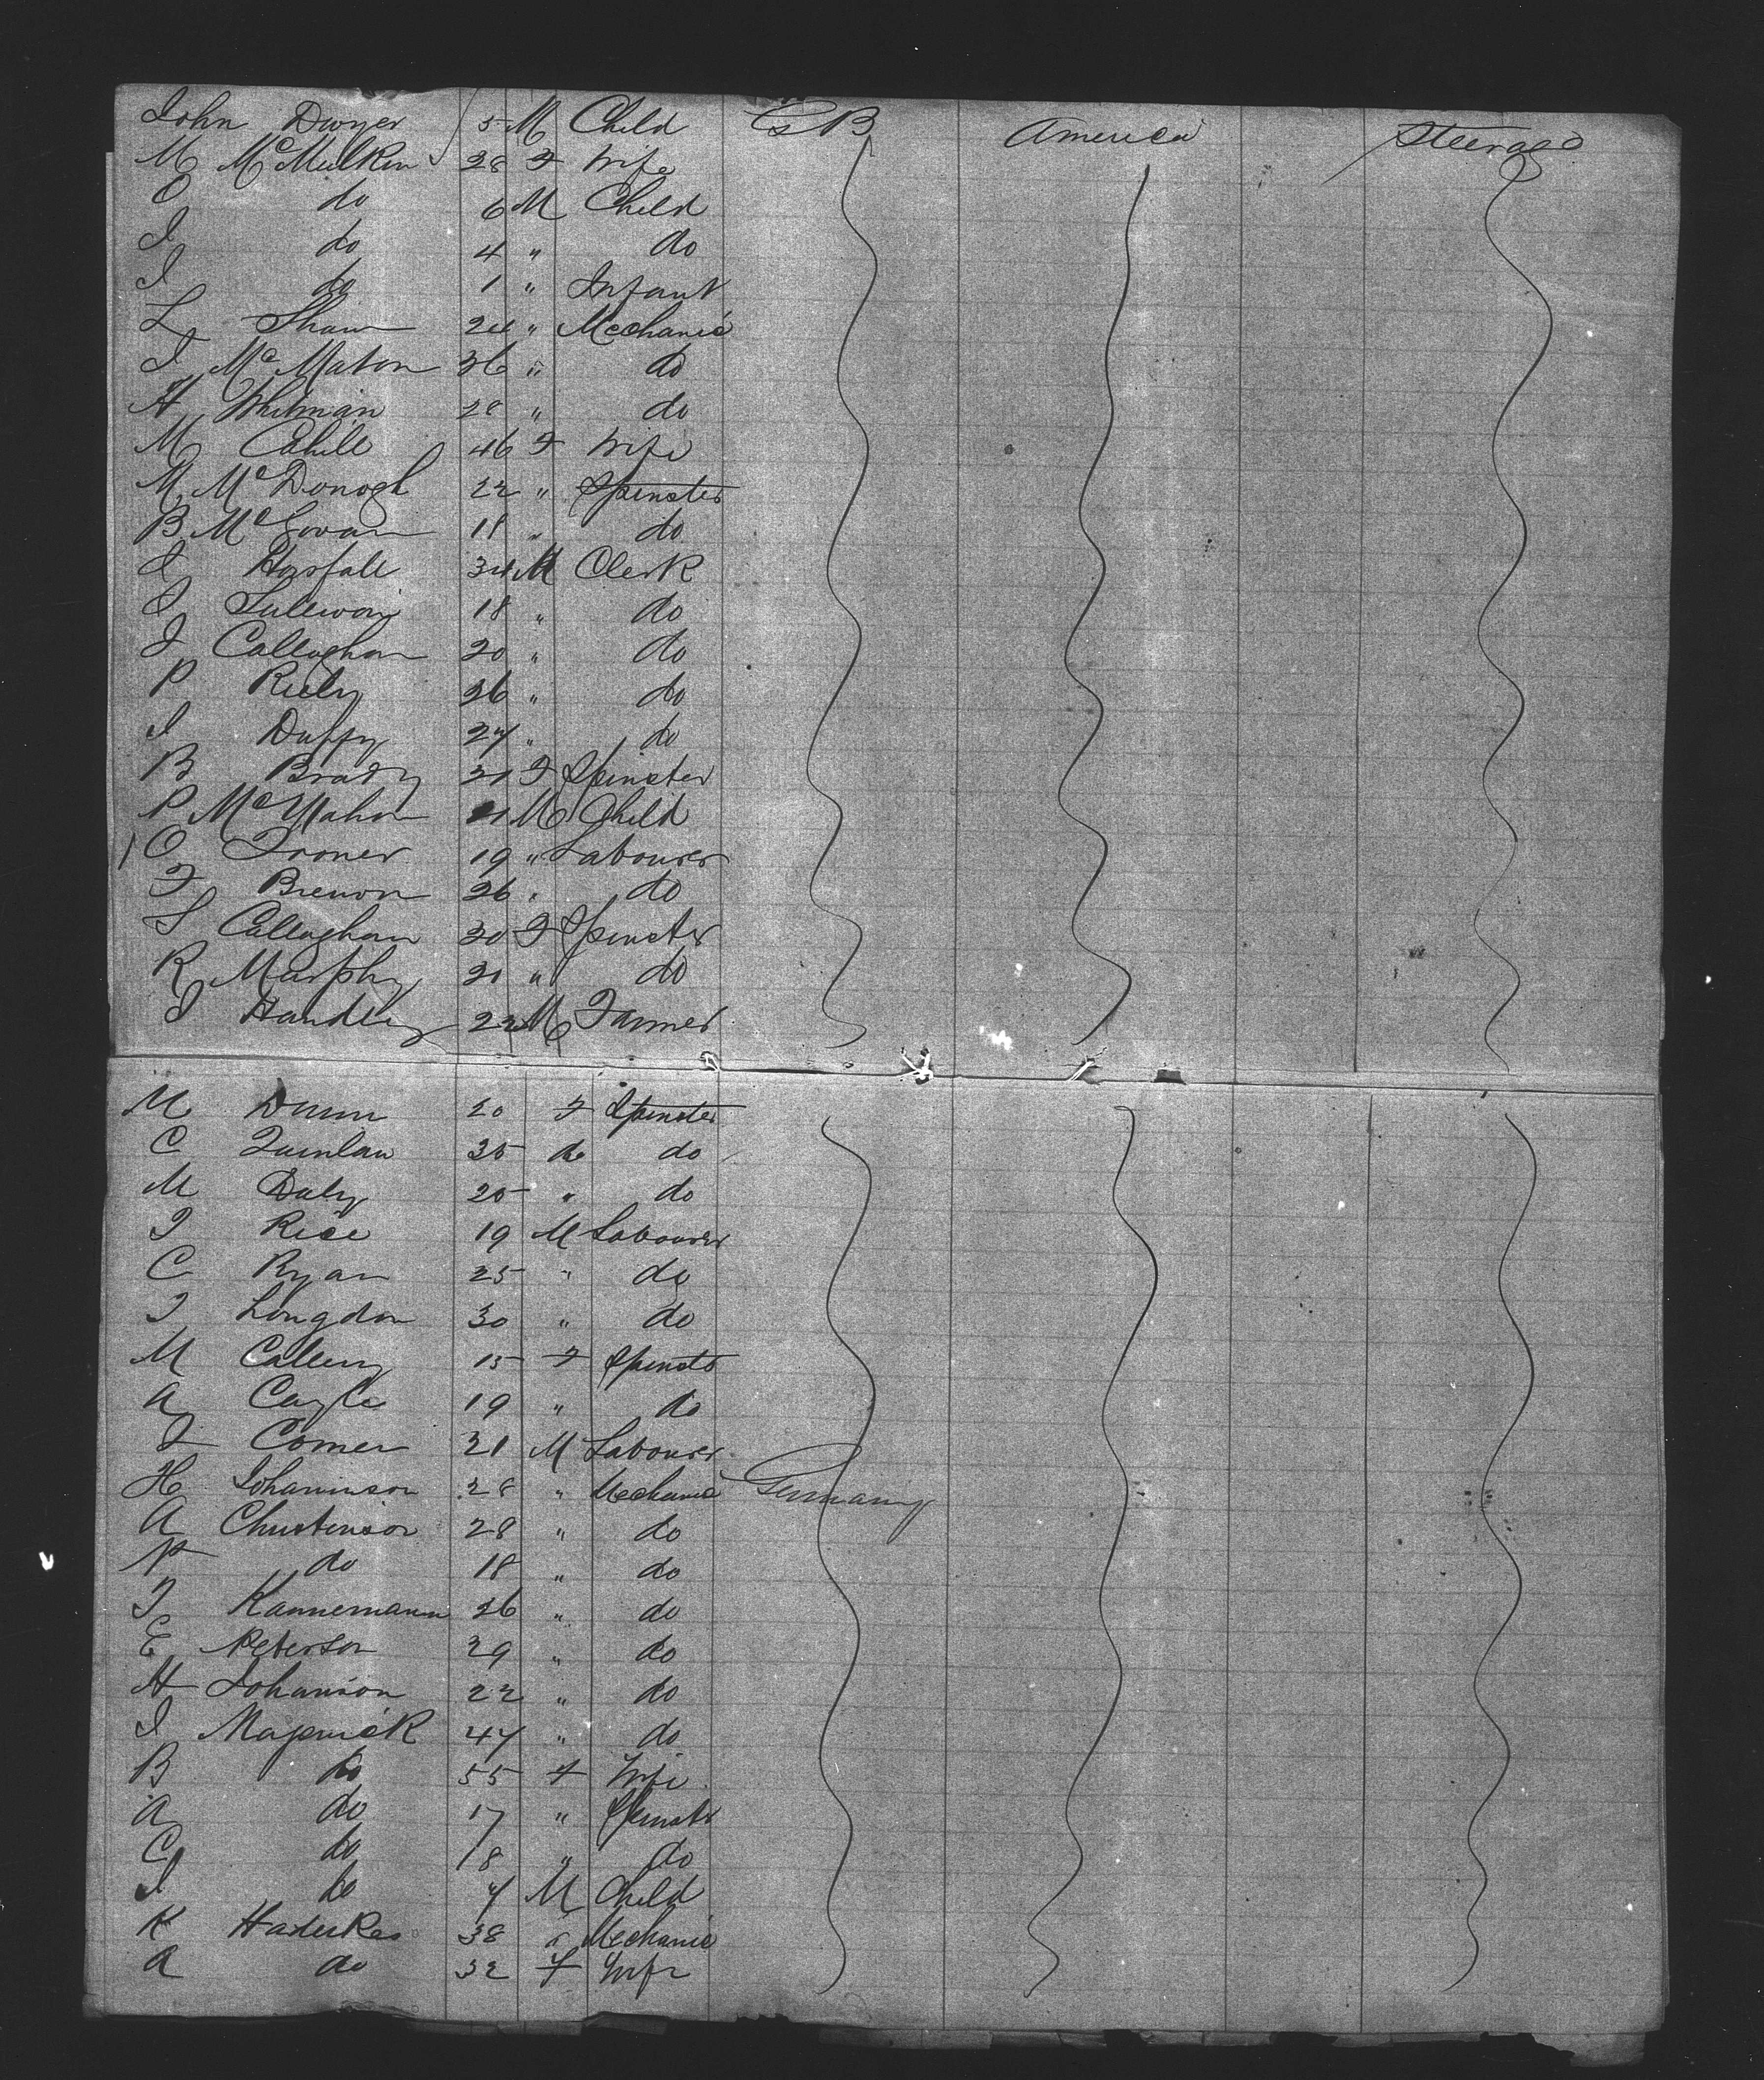 John Dwyer 5 M Child G B America Steerage
M McMulkin 28 F Wife
O do 6 M Child
J do 4 " do
J do 1 " Infant
L Shaw 24 " Mechanic
J McMaton 36 " do
H Whitman 28 " do
M Cahill 46 F Wife
M McDonogh 22 " Spinster
B McGovan 18 " do
J Horsfall 34 M Clerk
J Sullivan 18 " do
J Callaghan 20 " do
P Riely 26 " do
J Duffy 27 " do
B Brady 21 F Spinster
P McMahon M Child
O 19 " Labourer
F Brennon 26 " do
S Callaghan 30 F Spinster
R Murphy 21 " do
J Handley 22 M Farmer
M Dunn 20 F Spinster
C Quinlan 35 do do
M Daly 25 " do
T Rice 19 M Labourer
C Ryan 25 " do
T Longdon 30 " do
M Callery 15 F Spinstr
A Coyle 19 " do
J Comer 21 M Labourer
H Johaninson 28 " Mechanic Germany
A Christinson 28 " do
P do 18 " do
J Kannemann 26 " do
E Peterson 29 " do
H Johanson 22 " do
J 47 " do
B do 55 F Wife
A do 17 " Spinstr
C do 18 " do
J do 7 M Child
K 38 " Mechanic
A do 32 F Wife